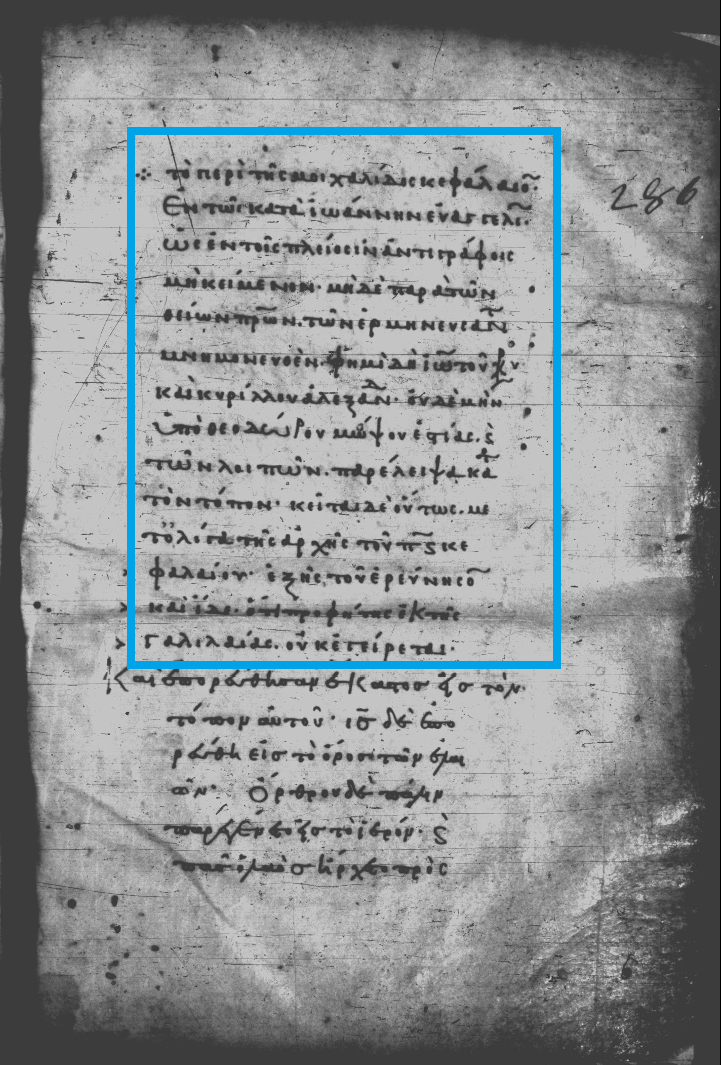 ⁘ τὸ περὶ τῆς μοιχαλίδος κεφάλαιο~·
Ἐν τῶι κατὰ ἰωάννην ἐυαγγελι~·
ὡς ἐν τοῖς πλείοσιν ἀντιγράφοις
μὴ κείμενον· μὴ δὲ παρὰ τῶν
θείων πρ̅ων. τῶν ἑρμηνευσάν̅
μνημονευθὲν· φημὶ δὴ ἰω̅ τοῦ χυ
καὶ κυρίλλου ἀλεξαν̅· οὐδὲ μὴν
ὑπὸ θεοδώρου μώψουεστίας. ϗ
τῶν λοιπῶν. παρέλειψα κα̅
τὸν τόπον· κεῖται δὲ οὕτως. με
τ ὀλίγα τῆς ἀρχῆς τοῦ πϛ̅ κε
φαλαίου· ἑξῆς τοῦ ἐρεύνησο~
καὶ ἴδε. ὅτι προφήτης ἐκ τῆς
γαλιλαίας. οὐκ ἐγείρεται·
Καὶ ἐπορεύθησαν ἕκαστος εἰς τὸν
τόπον αὐτοῦ· ις̅ δὲ ἐπο
ρεύθη εἰς τὸ ὄρος τῶν ἐλαι
ῶν· Ὄρθρου δὲ πάλιν
παρεγένετο εἰς τὸ ἱερόν· ϗ
πᾶς ὁ λαὸς ἤρχετο πρὸς
286